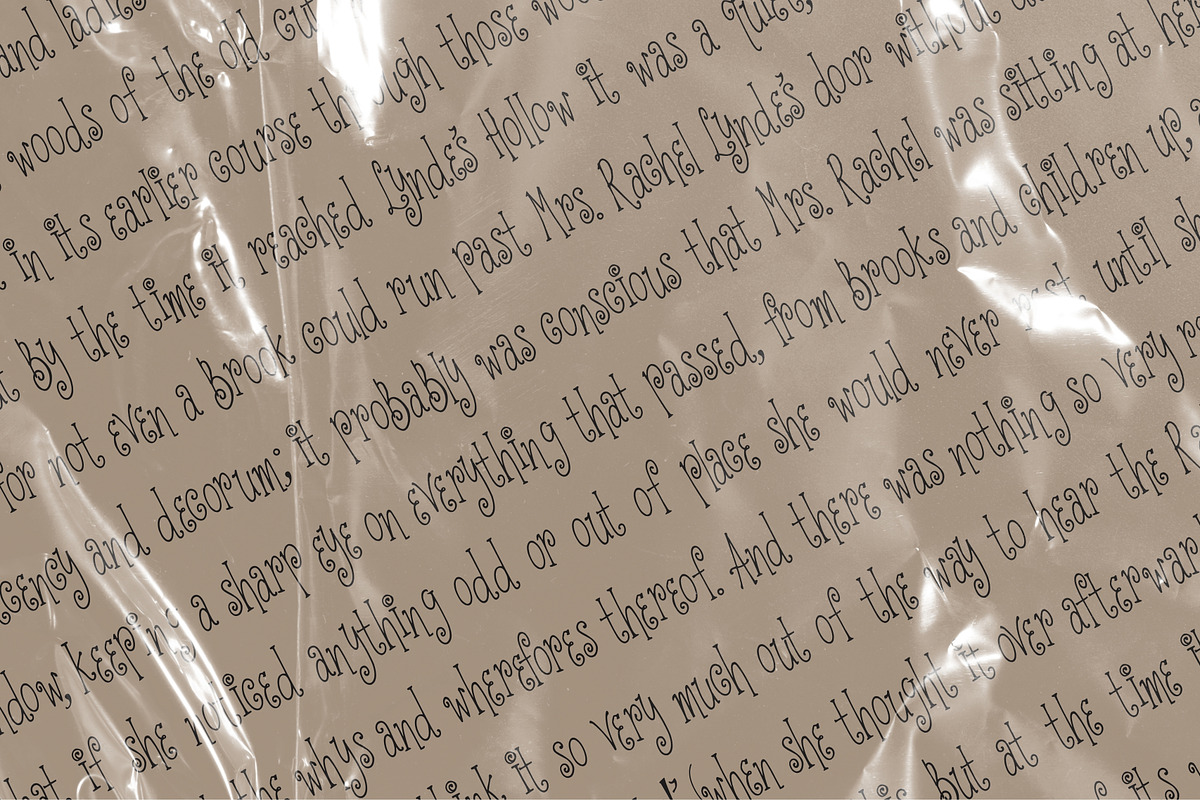 and ladies
woods of the old
in its earlier course through those
By the time it reached Lynde's Hollow it was a quiet,
for not even a brook could run past Mrs. Rachel Lynde's door without
and decorum; it probably was conscious that Mrs. Rachel was sitting at her
keeping a sharp eye on everything that passed, from brooks and children up,
if she noticed anything odd or out of place she would never rest until
the whys and wherefores thereof. And there was nothing so very
it so very much out of the way to hear the
(when she thought it over afterwar
But at the time
its